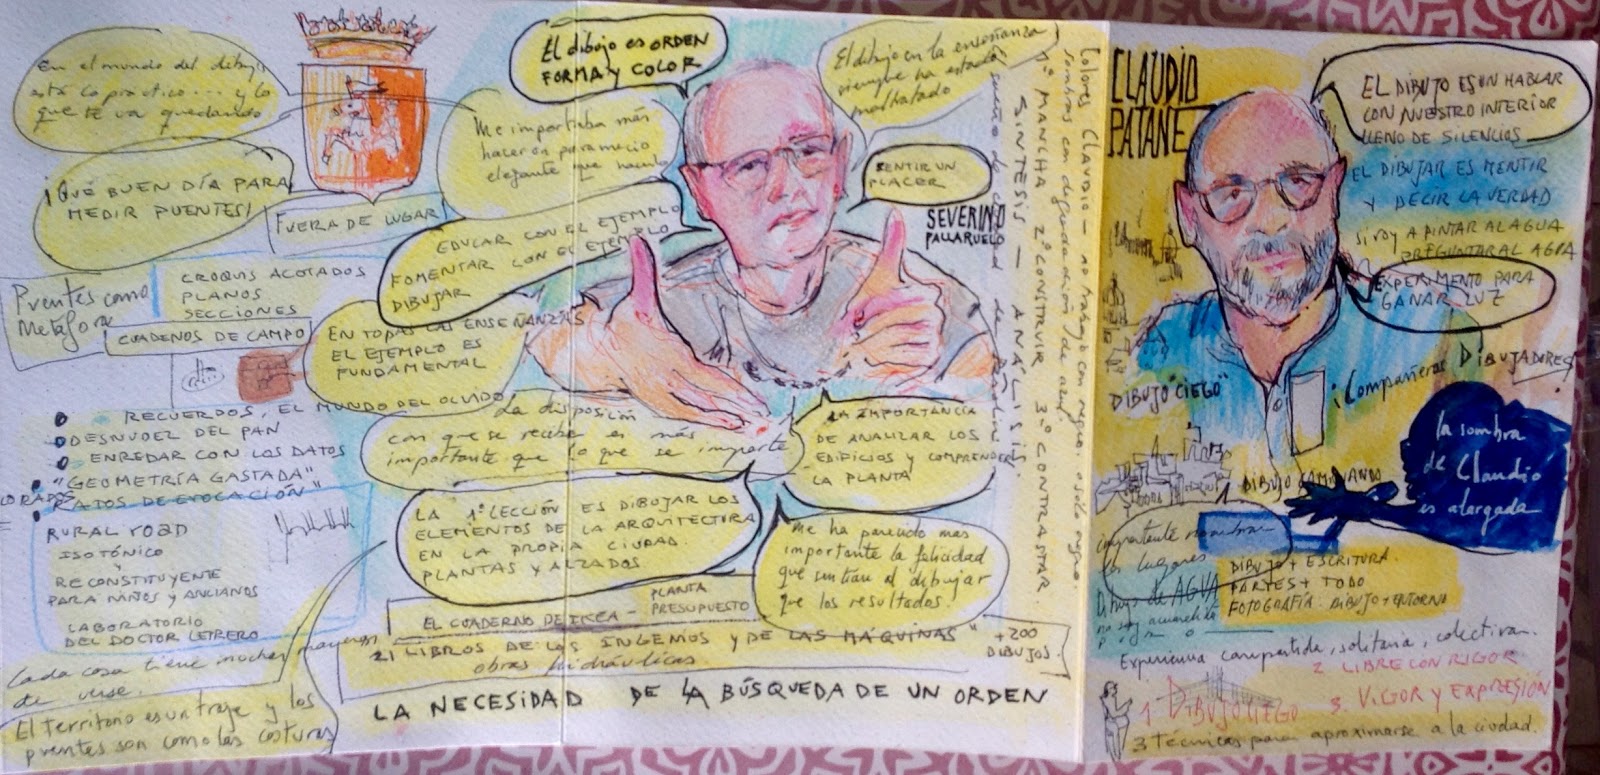 En el mundo del dibujo
está lo práctico... y lo
que te va quedando
¡QUÉ BUEN DÍA PARA
MEDIR PUENTES!
FUERA DE LUGAR
Puentes como
Metáfora
CROQUIS ACOTADOS
PLANOS
SECCIONES
CUADERNOS DE CAMPO
RECUERDOS, EL MUNDO DEL OLVIDO
DESNUDEZ DEL PAN
ENREDAR CON LOS DATOS
"GEOMETRÍA GASTADA"
RATOS DE EVOCACIÓN"
RURAL ROAD
ISOTÓNICO
Y
RECONSTITUYENTE
PARA NIÑOS y ANCIANOS
LABORATORIO
DEL DOCTOR LETRERO
Cada cosa tiene muchas maneras
de verse.
El territorio es un traje y los
puentes son como las costuras
El dibujo es ORDEN
FORMA y COLOR
Me importaba más
hacer un paramecio
elegante que
EDUCAR CON EL EJEMPLO
FOMENTAR CON EL EJEMPLO
DIBUJAR
EN TODAS LAS ENSEÑANZAS
EL EJEMPLO ES
FUNDAMENTAL
La disposición
con que se recibe es más
importante que lo que se imparte
LA 1ª LECCIÓN ES DIBUJAR LOS
ELEMENTOS DE LA ARQUITECTURA
EN LA PROPIA CIUDAD.
PLANTAS Y ALZADOS
EL CUADERNO DE IKEA -
PLANTA
PRESUPUESTO
21 LIBROS DE LOS INGENIOS Y DE LAS MÁQUINAS"
obras hidráulicas
+200
DIBUJOS
LA NECESIDAD DE LA BÚSQUEDA DE UN ORDEN
El dibujo en la enseñanza
siempre ha estado
maltratado
SENTIR UN
PLACER
SEVERINO
PALLARUELO
LA IMPORTANCIA
DE ANALIZAR LOS
EDIFICIOS y COMPRENDER
LA PLANTA
Me ha parecido mas
importante la felicidad
que sentían al dibujar
que los resultados.
Colores Claudio - no trabajo con negro. o sólo negro
sombras con degradación de azul.
1º MANCHA 2º CONSTRUIR 3º CONTRASTAR
SINTESIS - ANÁLISIS.
CLAUDIO
PATANE
EL DIBUJO ES UN HABLAR
CON NUESTRO INTERIOR
LLENO DE SILENCIOS
EL DIBUJAR ES MENTIR
Y DECIR LA VERDAD
si voy A PINTAR AL AGUA
PREGUNTAR AL AGUA
EXPERIMENTO PARA
GANAR LUZ
DIBUJO "CIEGO"
¡Compañeros DIBUJADORES!
la sombra
de Claudio
es alargada
DIBUJO CAMINANDO
importante nombrar
los lugares
Dibujo de AGUA
no soy acuarelista
DIBUJO + ESCRITURA.
PARTES + TODO
FOTOGRAFÍA: DIBUJO + ENTORNO
Experiencia compartida, solitaria, colectiva.
2. LIBRE CON RIGOR
1 DIBUJO CIEGO
3. VIGOR Y EXPRESIÓN
3 Técnicas para aproximarse a la ciudad.